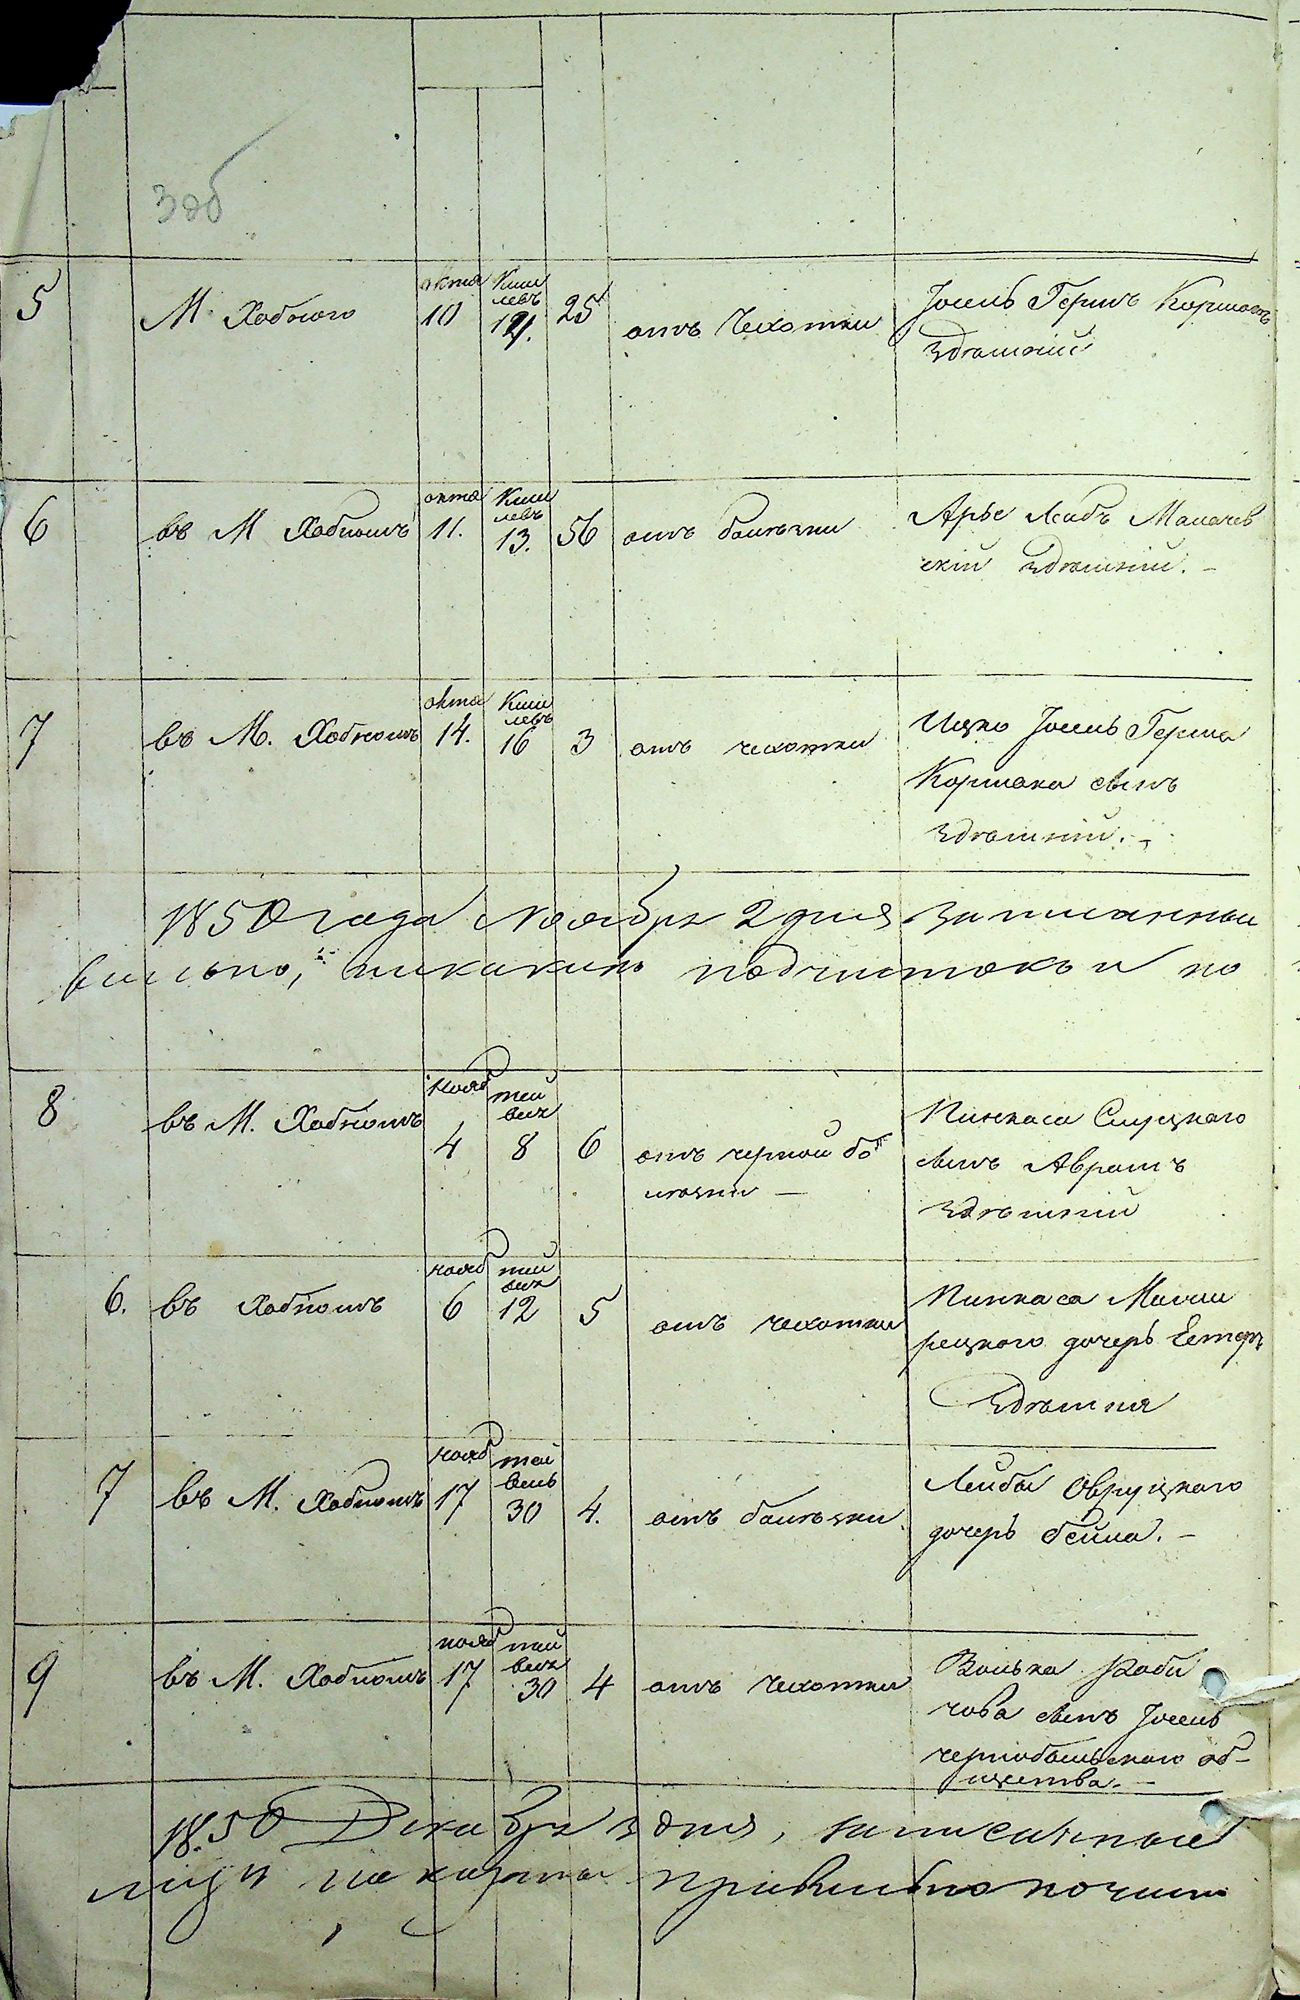 5 М Хабного
окта 10
Кис
левъ
12.
25
отъ Чехотки
Іосель Гершъ Коршакъ
здешній
6 въ М Хабномъ
окта 11.
Кис
левъ
13.
56
отъ болезни
Арье Лейбъ Малачев
скій здешній. —
7 въ М. Хабномъ
окта 14.
Кис
левъ
16
3
отъ чехотки
Ицко Іосель Герша
Коршака сынъ
здешній. —
1850 года Ноября 2 дня записанныя
подчистокъ и по
8 въ М. Хабномъ
нояб 4
тей
вех
8
6
отъ черной бо
лезни —
Пинкаса Слуцкаго
сынъ Аврамъ
здешній
6. въ Хабномъ
нояб 6
тей
вех
12
5
отъ чехотки
Пинкаса
рецкого дочерь Естеръ
здешняя
7 въ М. Хабномъ
нояб 17
тей
вель
30
4.
отъ болезни
Лейбы Овруцкаго
дочерь бейла. —
9 въ М. Хабномъ
нояб 17
тей
вех
30
4
отъ Чехотки
Волька Раби
нова сынъ Іосель
чернобыльскаго об-
щества. —
1850 Декабря 3 дня, записанные
правильно